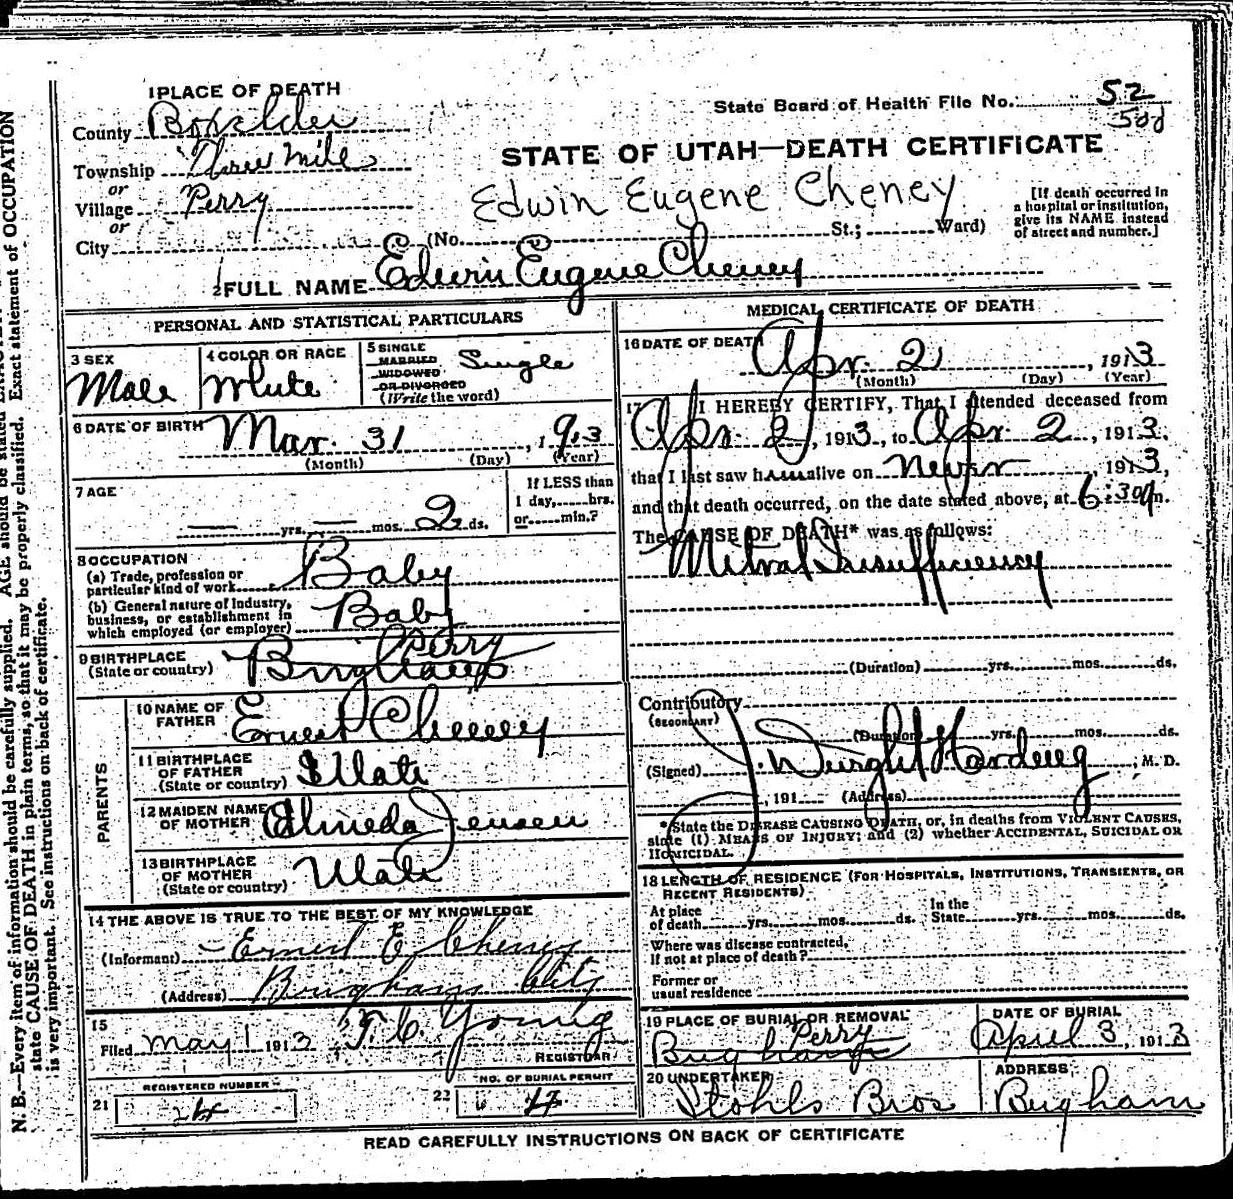 1 PLACE OF DEATH
County Boxelder
State Board of Health File No. 52
Township Three Mile
STATE OF UTAH—DEATH CERTIFICATE
or
Village Perry
Edwin Eugene Cheney
[If death occurred in a hospital or institution, give its NAME instead of street and number.]
or
City (No. St.; Ward)
2 FULL NAME Edwin Eugene Cheney
PERSONAL AND STATISTICAL PARTICULARS
3 SEX Male
4 COLOR OR RACE White
5 SINGLE
MARRIED
WIDOWED
OR DIVORCED
(Write the word)
Single
6 DATE OF BIRTH Mar. 31, 1913
(Month) (Day) (Year)
7 AGE
— yrs. — mos. 2 ds.
If LESS than
1 day, hrs.
or min.?
8 OCCUPATION
(a) Trade, profession or
particular kind of work Baby
(b) General nature of industry,
business, or establishment in
which employed (or employer) Baby
9 BIRTHPLACE
(State or country)
Perry
Brigham
PARENTS
10 NAME OF
FATHER Ernest Cheney
11 BIRTHPLACE
OF FATHER
(State or country) Utah
12 MAIDEN NAME
OF MOTHER Elmeda Jensen
13 BIRTHPLACE
OF MOTHER
(State or country) Utah
14 THE ABOVE IS TRUE TO THE BEST OF MY KNOWLEDGE
(Informant) Ernest E Cheney
(Address) Brigham City
15
Filed May 1 1913 T. C. Young
REGISTRAR
REGISTERED NUMBER
21 24
NO. OF BURIAL PERMIT
22
MEDICAL CERTIFICATE OF DEATH
16 DATE OF DEATH Apr. 2, 1913
(Month) (Day) (Year)
17 I HEREBY CERTIFY, That I attended deceased from
Apr. 2, 1913, to Apr. 2, 1913,
that I last saw him alive on never, 1913,
and that death occurred, on the date stated above, at 6:30 m.
The CAUSE OF DEATH* was as follows:
Mitral Insufficiency
(Duration) yrs. mos. ds.
Contributory
(SECONDARY)
(Duration) yrs. mos. ds.
(Signed) J. Dwight Harding, M. D.
, 191 (Address)
*State the DISEASE CAUSING DEATH, or, in deaths from VIOLENT CAUSES,
state (1) MEANS OF INJURY; and (2) whether ACCIDENTAL, SUICIDAL OR
HOMICIDAL.
18 LENGTH OF RESIDENCE (FOR HOSPITALS, INSTITUTIONS, TRANSIENTS, OR
RECENT RESIDENTS)
At place
of death yrs. mos. ds.
In the
State yrs. mos. ds.
Where was disease contracted,
if not at place of death?
Former or
usual residence
19 PLACE OF BURIAL OR REMOVAL
Perry
Brigham
DATE OF BURIAL
April 3, 1913
20 UNDERTAKER
Stohls Bros
ADDRESS
Brigham
READ CAREFULLY INSTRUCTIONS ON BACK OF CERTIFICATE
N. B.—Every item of information should be carefully supplied. AGE should be stated Exact statement of OCCUPATION
state CAUSE OF DEATH in plain terms, so that it may be properly classified.
is very important. See instructions on back of certificate.